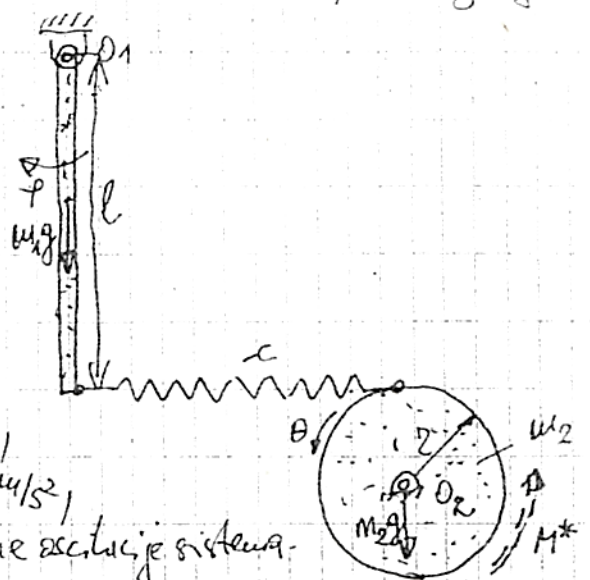 O1
φ
l
m₁g
c
m/s²,
θ
r
m₂
O₂
m₂g
M*
oscilacije sistema.